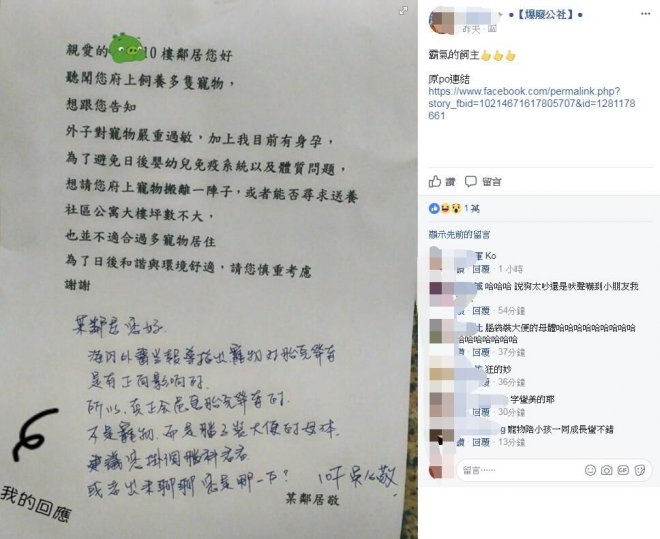 親愛的 10樓鄰居您好
聽聞您府上飼養多隻寵物，
想跟您告知
外子對寵物嚴重過敏，加上我目前有身孕，
為了避免日後嬰幼兒免疫系統以及體質問題，
想請您府上寵物搬離一陣子，或者能否尋求送養
社區公寓大樓坪數不大，
也並不適合過多寵物居住
為了日後和諧與環境舒適，請您慎重考慮
謝謝
某鄰居您好.
海內外醫學報導指出寵物對胎兒發育
是有正向影響的.
所以,真正會危害胎兒發育的.
不是寵物.而是腦子裝大便的母体.
建議您掛個腦科看看
或者出來聊聊您是哪一下?
10F 吳公敬
某鄰居敬
我的回應
●【爆廢公社】●
昨天
霸氣的飼主👍👍👍
原po連結
https://www.facebook.com/permalink.php?
story_fbid=10214671617805707&id=1281178
661
讚 留言
1 萬
顯示先前的留言
Ko
讚 · 回覆 · 1 小時
哈哈哈 說狗太吵還是吠聲嚇到小朋友我
讚 · 回覆 · 54分鐘
腦袋裝大便的母體哈哈哈哈哈哈哈哈哈
哈哈哈哈哈哈哈哈
讚 · 回覆 · 37分鐘
狂的妙
讚 · 回覆 · 36分鐘
字蠻美的耶
讚 · 回覆 · 19分鐘
g 寵物陪小孩一同成長蠻不錯
讚 · 回覆 · 13分鐘
留言……
GIF